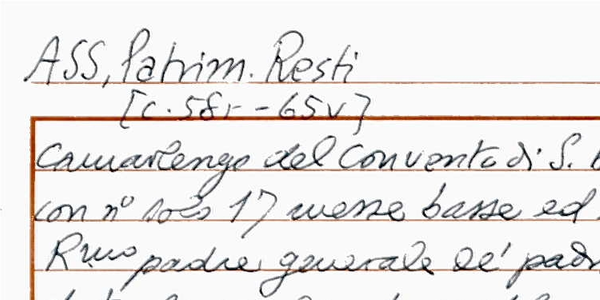 ASS, Patrim. Resti
[c. 58r - 65v]
Camarlengo del Convento di S.
con n° solo 17 messe basse ed
Rmo padre generale de' padr